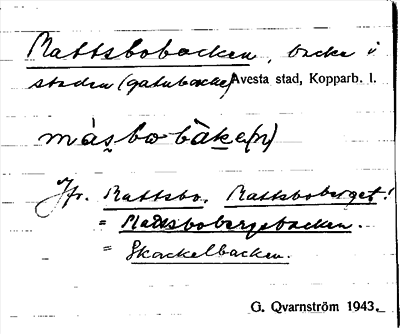 Mattsbobacken, backe i
staden (gatubacke) Avesta stad, Kopparb. l.
màs̮bobàke(n)
Jfr. Mattsbo. Mattsboberget!
= Mattsbobergsbacken.
= Skackelbacken.
G. Qvarnström 1943.